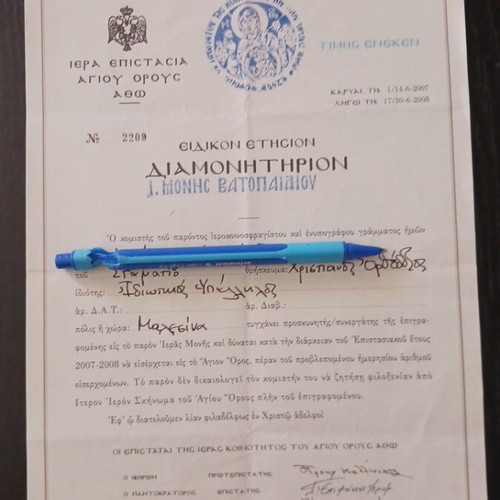 ΙΕΡΑ ΕΠΙΣΤΑΣΙΑ
ΑΓΙΟΥ ΟΡΟΥΣ
ΑΘΩ
ΤΙΜΗΣ ΕΝΕΚΕΝ
ΚΑΡΥΑΙ, ΤΗ, 1/14-6-2007
ΛΗΓΕΙ ΤΗ, 17/30-6-2008
№ 2209
ΕΙΔΙΚΟΝ ΕΤΗΣΙΟΝ
ΔΙΑΜΟΝΗΤΗΡΙΟΝ
Ι. ΜΟΝΗΣ ΒΑΤΟΠΑΙΔΙΟΥ
Ὁ κομιστὴς τοῦ παρόντος ἱεροκοινοσφραγίστου καὶ ἐνυπογράφου γράμματος ἡμῶν
τοῦ Σταμάτιο θρήσκευμα: Χριστιανὸς Ὀρθόδοξος
ἰδιότης: Ἰδιωτικὸς Ὑπάλληλος
ἀρ. Δ.Α.Τ.: ἀρ. Διαβ.:
πόλις ἢ χώρα: Μαλεσίνα τυγχάνει προσκυνητής/συνεργάτης τῆς ἐπιγρα-
φομένης εἰς τὸ παρὸν Ἱερᾶς Μονῆς καὶ δύναται κατὰ τὴν διάρκειαν τοῦ Ἐπιστασιακοῦ ἔτους
2007-2008 νὰ εἰσέρχεται εἰς τὸ Ἅγιον Ὄρος, πέραν τοῦ προβλεπομένου ἡμερησίου ἀριθμοῦ
εἰσερχομένων. Τὸ παρὸν δὲν δικαιολογεῖ τὸν κομιστήν του νὰ ζητήσῃ φιλοξενίαν ἀπὸ
ἕτερον Ἱερὸν Σκήνωμα τοῦ Ἁγίου Ὄρους πλὴν τοῦ ἐπιγραφομένου.
Ἐφ' ᾧ διατελοῦμεν λίαν φιλαδέλφως ἐν Χριστῷ ἀδελφοί
ΟΙ ΕΠΙΣΤΑΤΑΙ ΤΗΣ ΙΕΡΑΣ ΚΟΙΝΟΤΗΤΟΣ ΤΟΥ ΑΓΙΟΥ ΟΡΟΥΣ ΑΘΩ
Ο ΙΒΗΡΩΝ ΠΡΩΤΕΠΙΣΤΑΤΗΣ
Ο ΠΑΝΤΟΚΡΑΤΟΡΟΣ ΕΠΙΣΤΑΤΗΣ